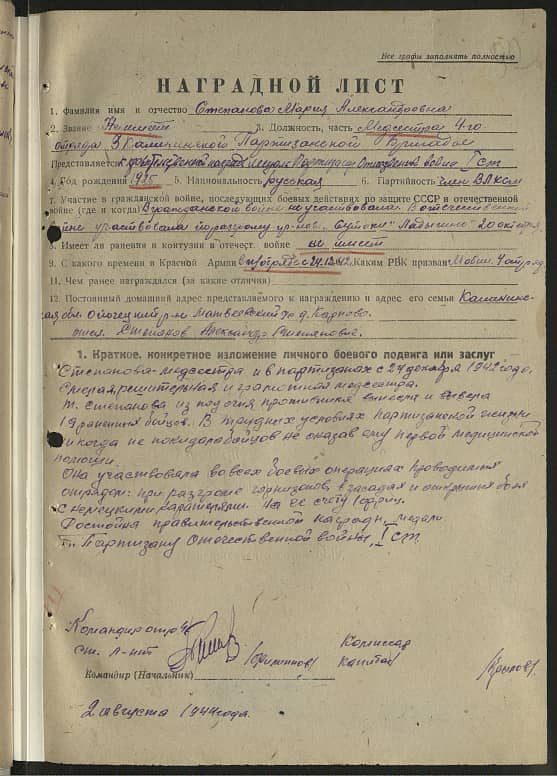 Все графы заполнять полностью
НАГРАДНОЙ ЛИСТ
1. Фамилия имя и отчество Степанова Мария Александровна
2. Звание Не имеет 3. Должность, часть Медсестра 4-го
отряда 3 Калининской Партизанской Бригады
Представляется к правительственной награде медали Партизану Отечественной войны I ст
4. Год рождения 1925 5. Национальность русская 6. Партийность член ВЛКСМ
7. Участие в гражданской войне, последующих боевых действиях по защите СССР и отечественной
войне (где и когда) В гражданской войне не участвовала. В отечественной
войне участвовала 20 октября
8. Имеет ли ранения и контузии в отечест. войне не имеет
9. С какого времени в Красной Армии с 24.12.42 Каким РВК призван Мобил. 4 отряд.
11. Чем ранее награждался (за какие отличия)
12. Постоянный домашний адрес представляемого к награждению и адрес его семьи Калининс-
кая обл. Опочецкий р-н Матвеевский с/с д. Карпово
Степанов Александр
1. Краткое, конкретное изложение личного боевого подвига или заслуг
Степанова - медсестра и в партизанах с 24 декабря 1942 года.
Смелая, решительная и грамотная медсестра.
Т. Степанова из под огня противника вынесла и вывезла
19 раненых бойцов. В трудных условиях партизанской жизни
никогда не покидала бойцов не оказав ему первой медицинской
помощи.
Она участвовала во всех боевых операциях проводимых
отрядом: при разгроме гарнизонов, в засадах и открытых боях
с немецкими карателями. На её счету 1 фриц.
Достойна правительственной награды, медали
"Партизану Отечественной войны" I ст.
Командир отр
ст. л-нт Комиссар
капитан /Крылов/
Командир (Начальник)
2 августа 1944 года.